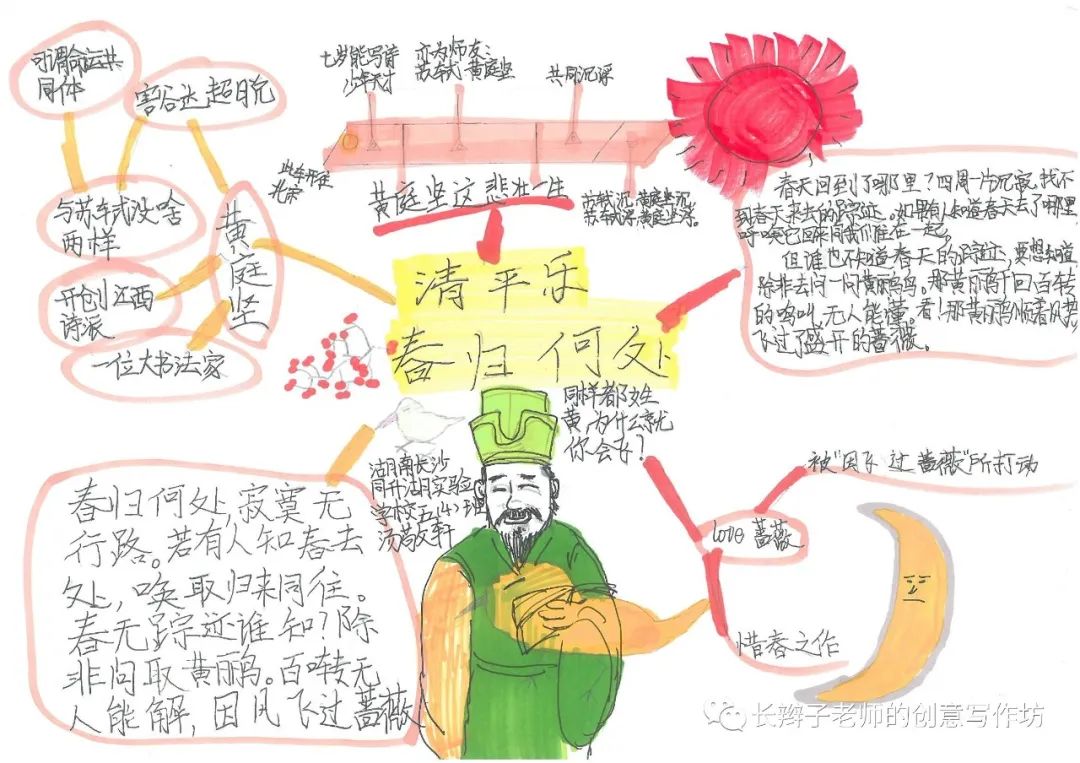 可谓命运共
同体
豁谷达,超日兑
与苏车式没啥
两样
开创江西
诗派
一位大书法家
黄庭坚
七岁能写诗
少年天才
亦为师友:
苏车式 黄庭坚
共同沉浮
此车开往
北宋
黄庭坚这悲壮一生
苏轼沉,黄庭坚沉,
苏车式浮,黄庭坚浮。
清平乐
春归何处
春天回到了哪里?四周一片沉寂,找不
到春天来去的踪迹。如果有人知道春天去了哪里,
呼唤它回来同我们住在一起。
但谁也不知道春天的踪迹,要想知道,
除非去问一问黄鹂鸟。那黄鹂千回百转
的鸣叫,无人能懂。看!那黄鹂顺着风势
飞过了盛开的蔷薇。
同样都姓
黄,为什么就
你会女?
湖南长沙
同升湖实验
学校五(4)班
汤敬轩
春归何处,寂寞无
行路。若有人知春去
处,唤取归来同往。
春无踪迹谁知?除
非问取黄鹂鸟。百啭无
人能解,因风飞过蔷薇
被"因风飞过蔷薇"所打动
love 蔷薇
惜春之作
长辫子老师的创意写作坊